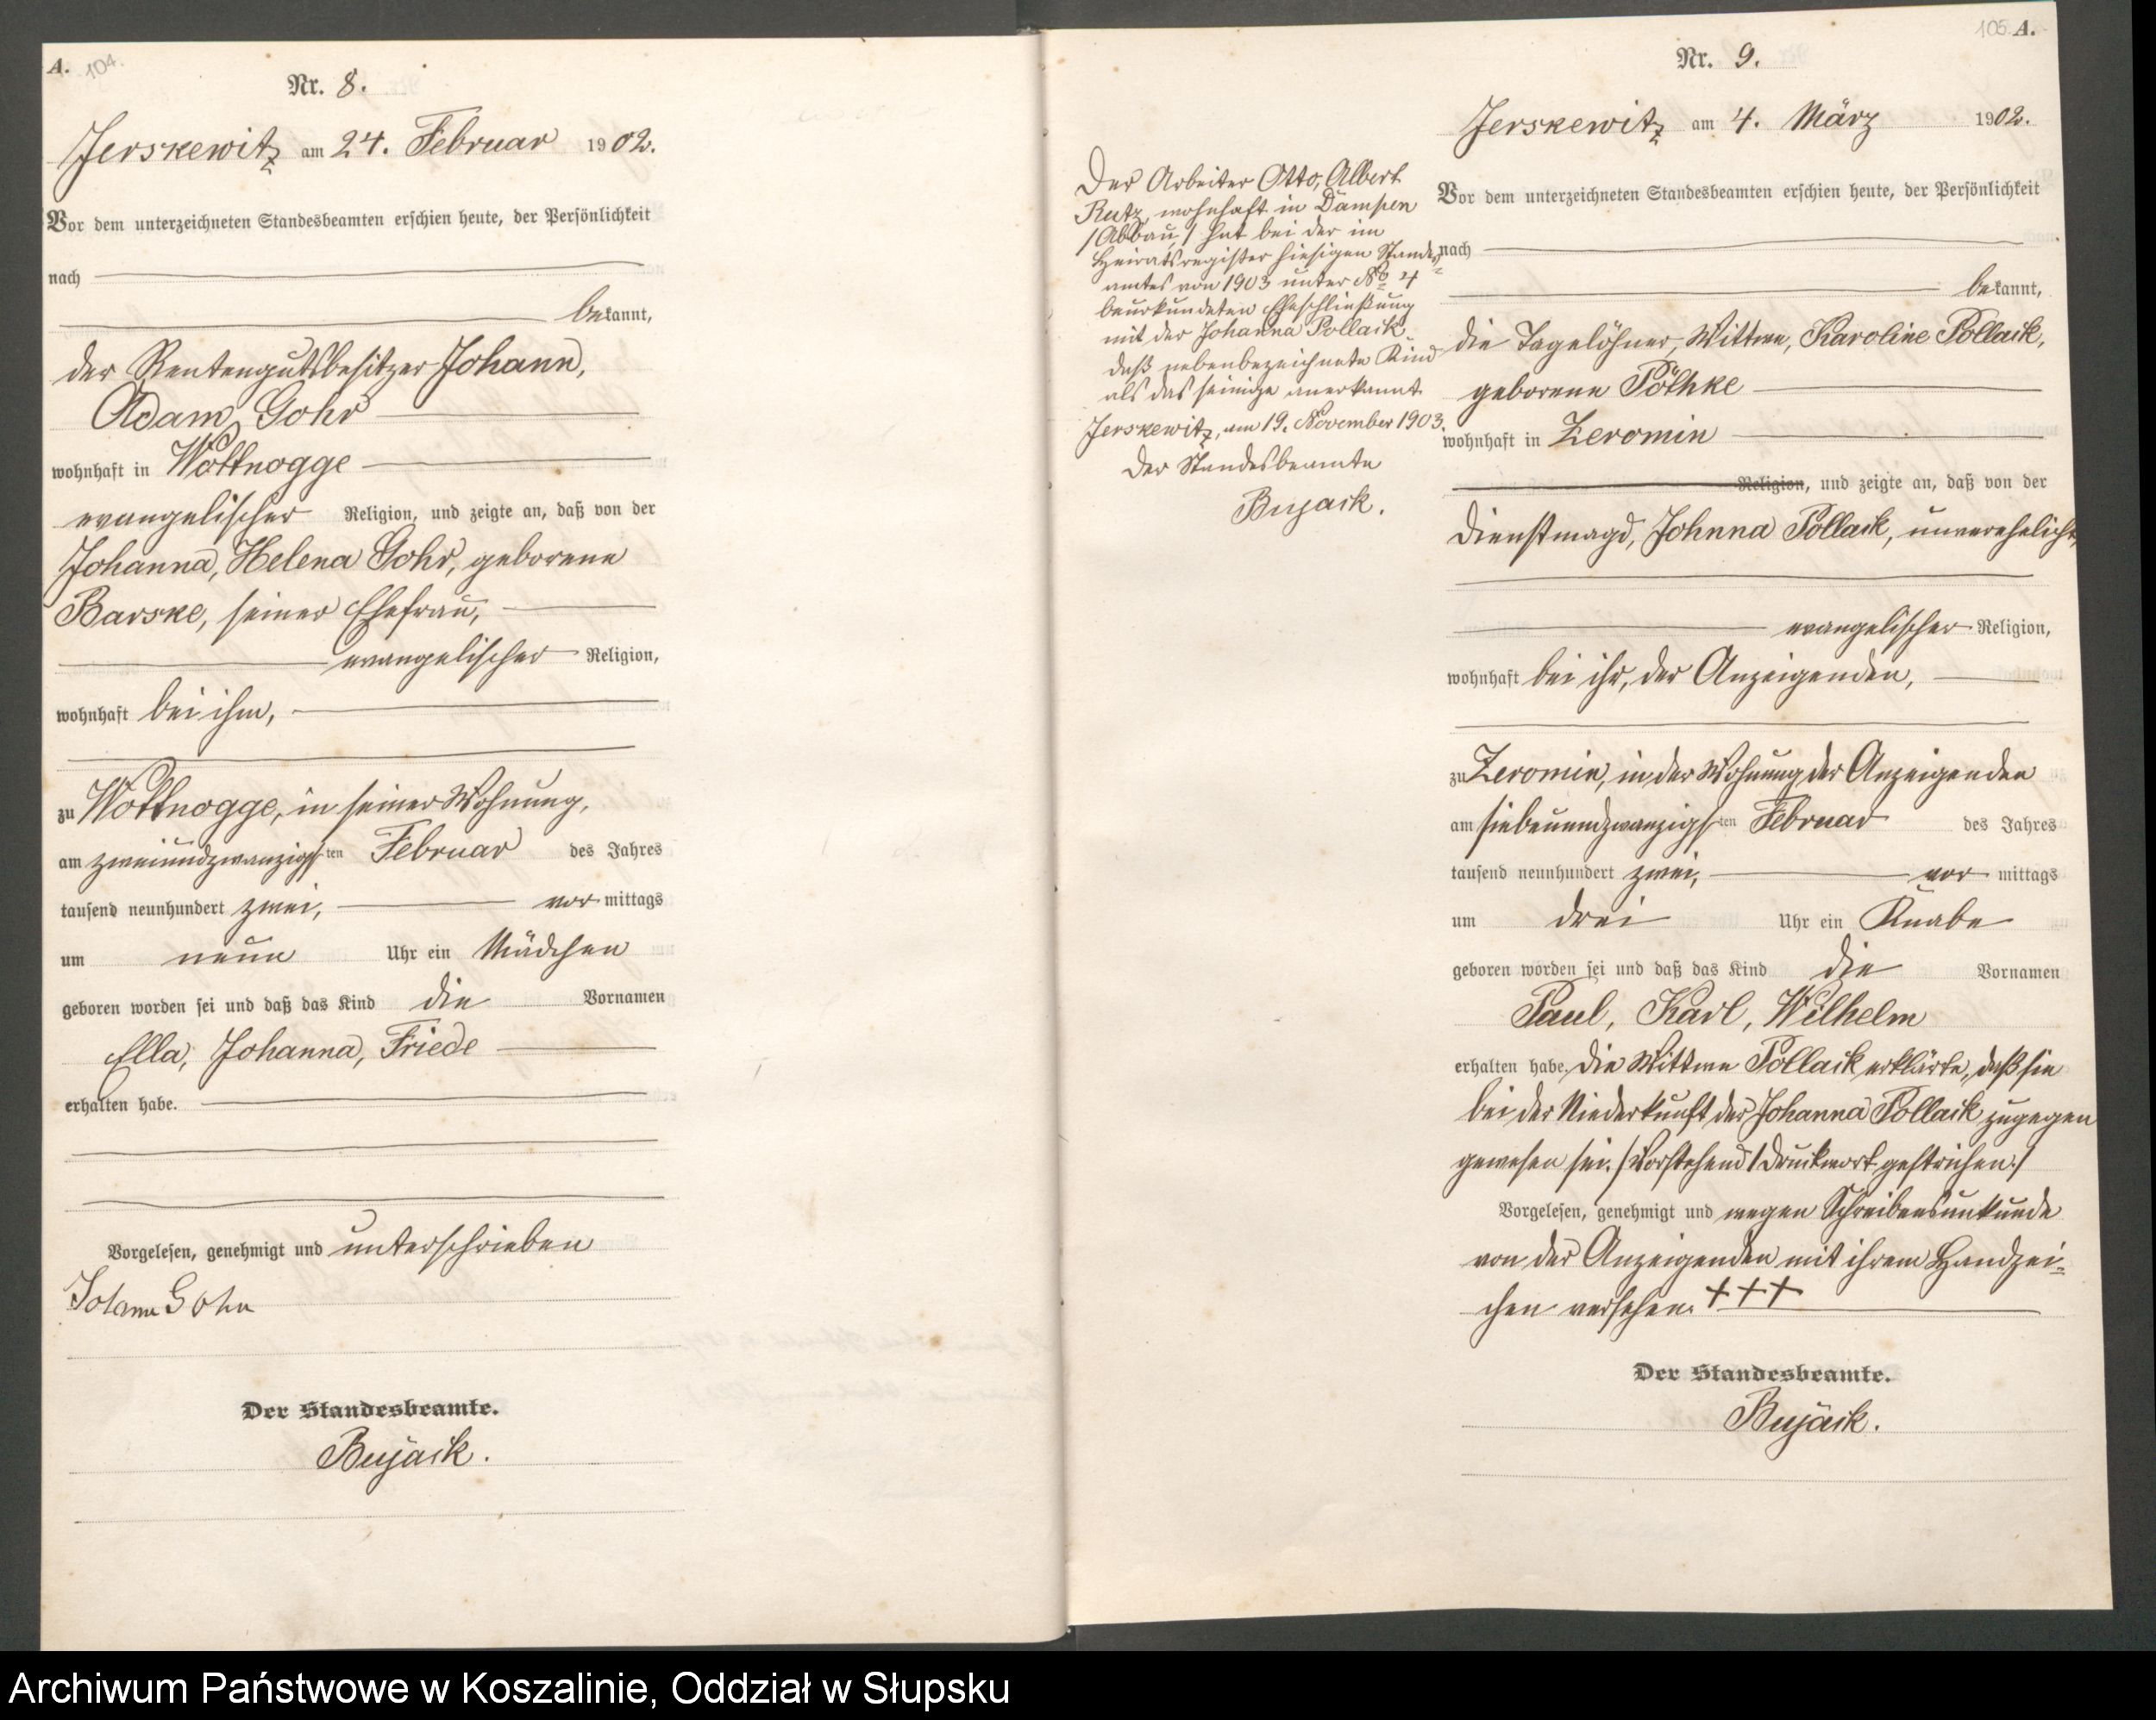 A. 104.
Nr. 8.
Jerskewitz am 24. Februar 1902.
Vor dem unterzeichneten Standesbeamten erschien heute, der Persönlichkeit
nach
bekannt,
der Rentengutsbesitzer Johann,
Adam Gohr
wohnhaft in Wottnogge
evangelischer Religion, und zeigte an, daß von der
Johanna, Helena Gohr, geborene
Barske, seiner Ehefrau,
evangelischer Religion,
wohnhaft bei ihm,
zu Wottnogge, in seiner Wohnung,
am zweiundzwanzigsten Februar des Jahres
tausend neunhundert zwei, vor mittags
um neun Uhr ein Mädchen
geboren worden sei und daß das Kind die Vornamen
Ella, Johanna, Friede
erhalten habe.
Vorgelesen, genehmigt und unterschrieben
Johann Gohr
Der Standesbeamte.
Bujack.
105 A.
Nr. 9.
Jerskewitz am 4. März 1902.
Der Arbeiter Otto, Albert
Rutz, wohnhaft in Dampen
/Abbau/ hat bei der im
Heiratsregister hiesigen Standes-
amtes von 1903 unter No 4
beurkundeten Eheschließung
mit der Johanna Pollack
daß nebenbezeichnete Kind
als das seinige anerkannt
Jerskewitz, am 19. November 1903.
Der Standesbeamte
Bujack.
Vor dem unterzeichneten Standesbeamten erschien heute, der Persönlichkeit
nach
bekannt,
die Tagelöhner, Wittwe, Karoline Pollack,
geborene Pöthke
wohnhaft in Zeromin
Religion, und zeigte an, daß von der
Dienstmagd, Johnna Pollack, unverehelicht,
evangelischer Religion,
wohnhaft bei ihr, der Anzeigenden,
zu Zeromin, in der Wohnung der Anzeigenden
am siebenundzwanzigsten Februar des Jahres
tausend neunhundert zwei, vor mittags
um drei Uhr ein Knabe
geboren worden sei und daß das Kind die Vornamen
Paul, Karl, Wilhelm
erhalten habe. Die Wittwe Pollack erklärte, daß sie
bei der Niederkunft der Johanna Pollack zugegen
gewesen sei. /Vorstehend 1 Druckwort gestrichen./
Vorgelesen, genehmigt und wegen Schreibensunkunde
von der Anzeigenden mit ihrem Handzei-
chen versehen. +++
Der Standesbeamte.
Bujack.
Archiwum Państwowe w Koszalinie, Oddział w Słupsku